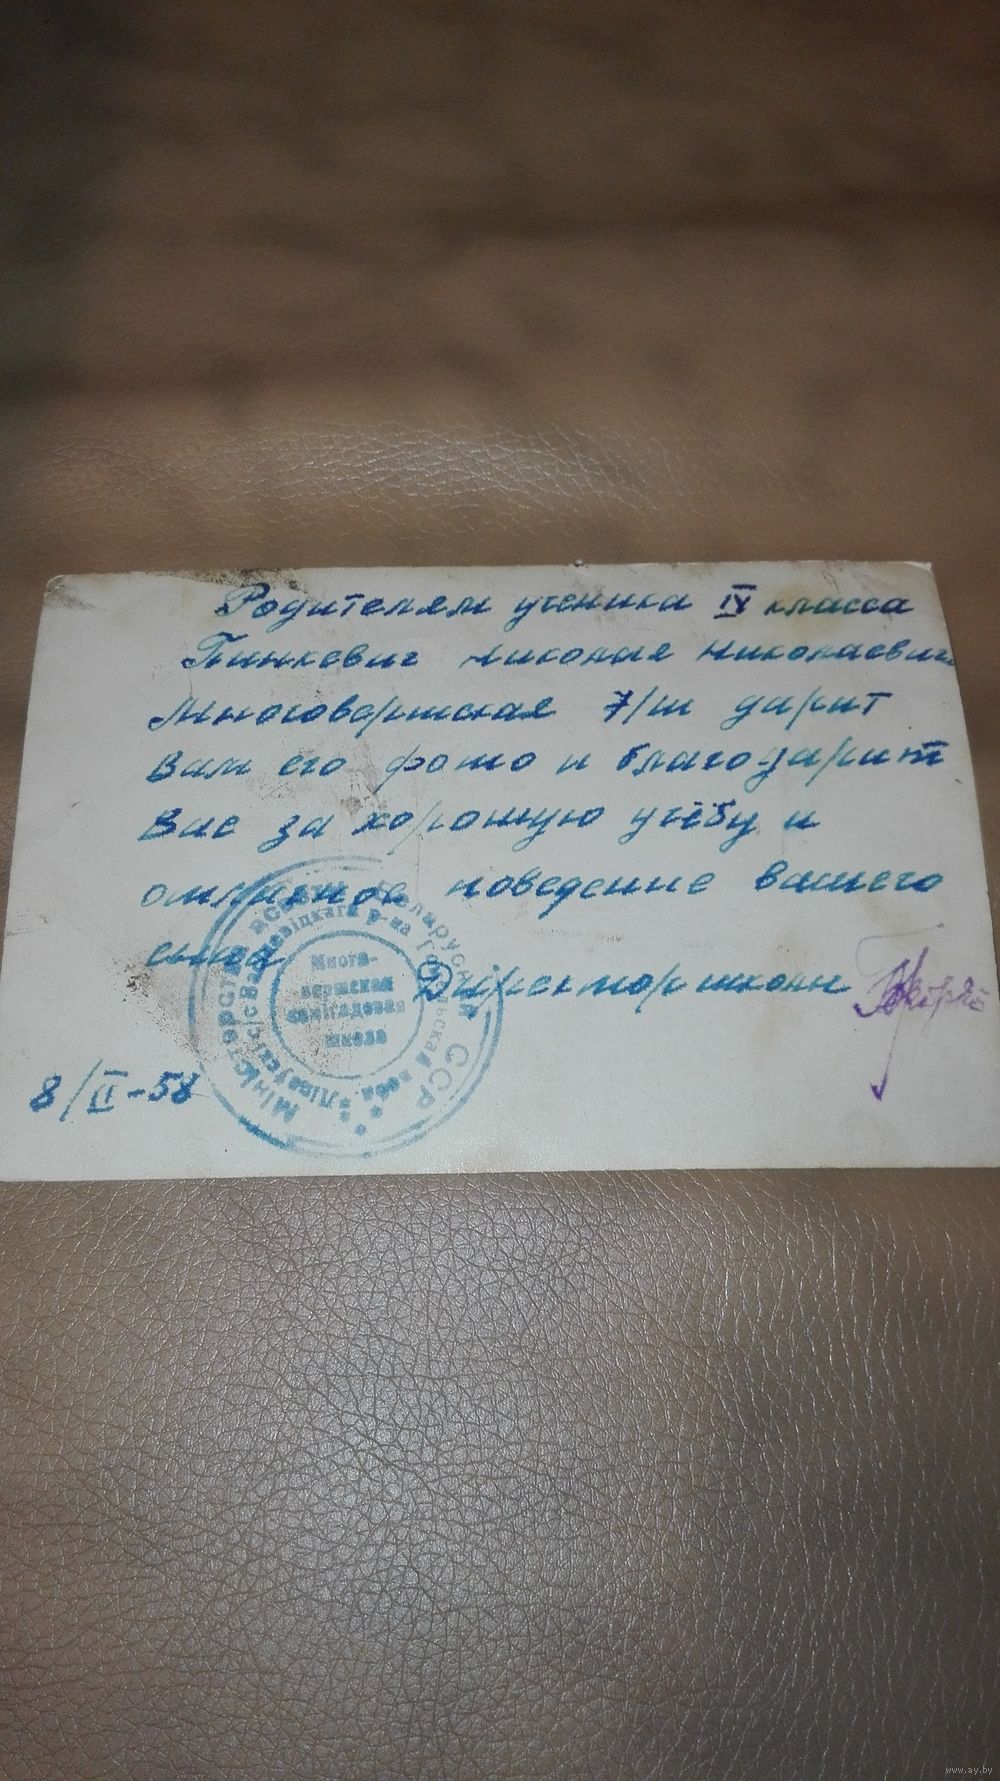 Родителям ученика IV класса
Пинкевич Николая Николаевич
Многовершская 7/ш дарит
Вам его фото и благодарит
Вас за хорошую учёбу и
отличное поведение вашего
сына.
Директор школы
8/II-58
Мнага-
вершская
сямігадовая
школа
ССР
www.ay.by